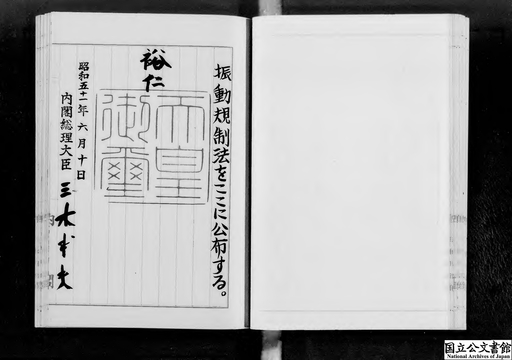 振動規制法をここに公布する。
裕仁
天皇御璽
昭和五十一年六月十日
内閣総理大臣 三木武夫
内閣
国立公文書館
National Archives of Japan